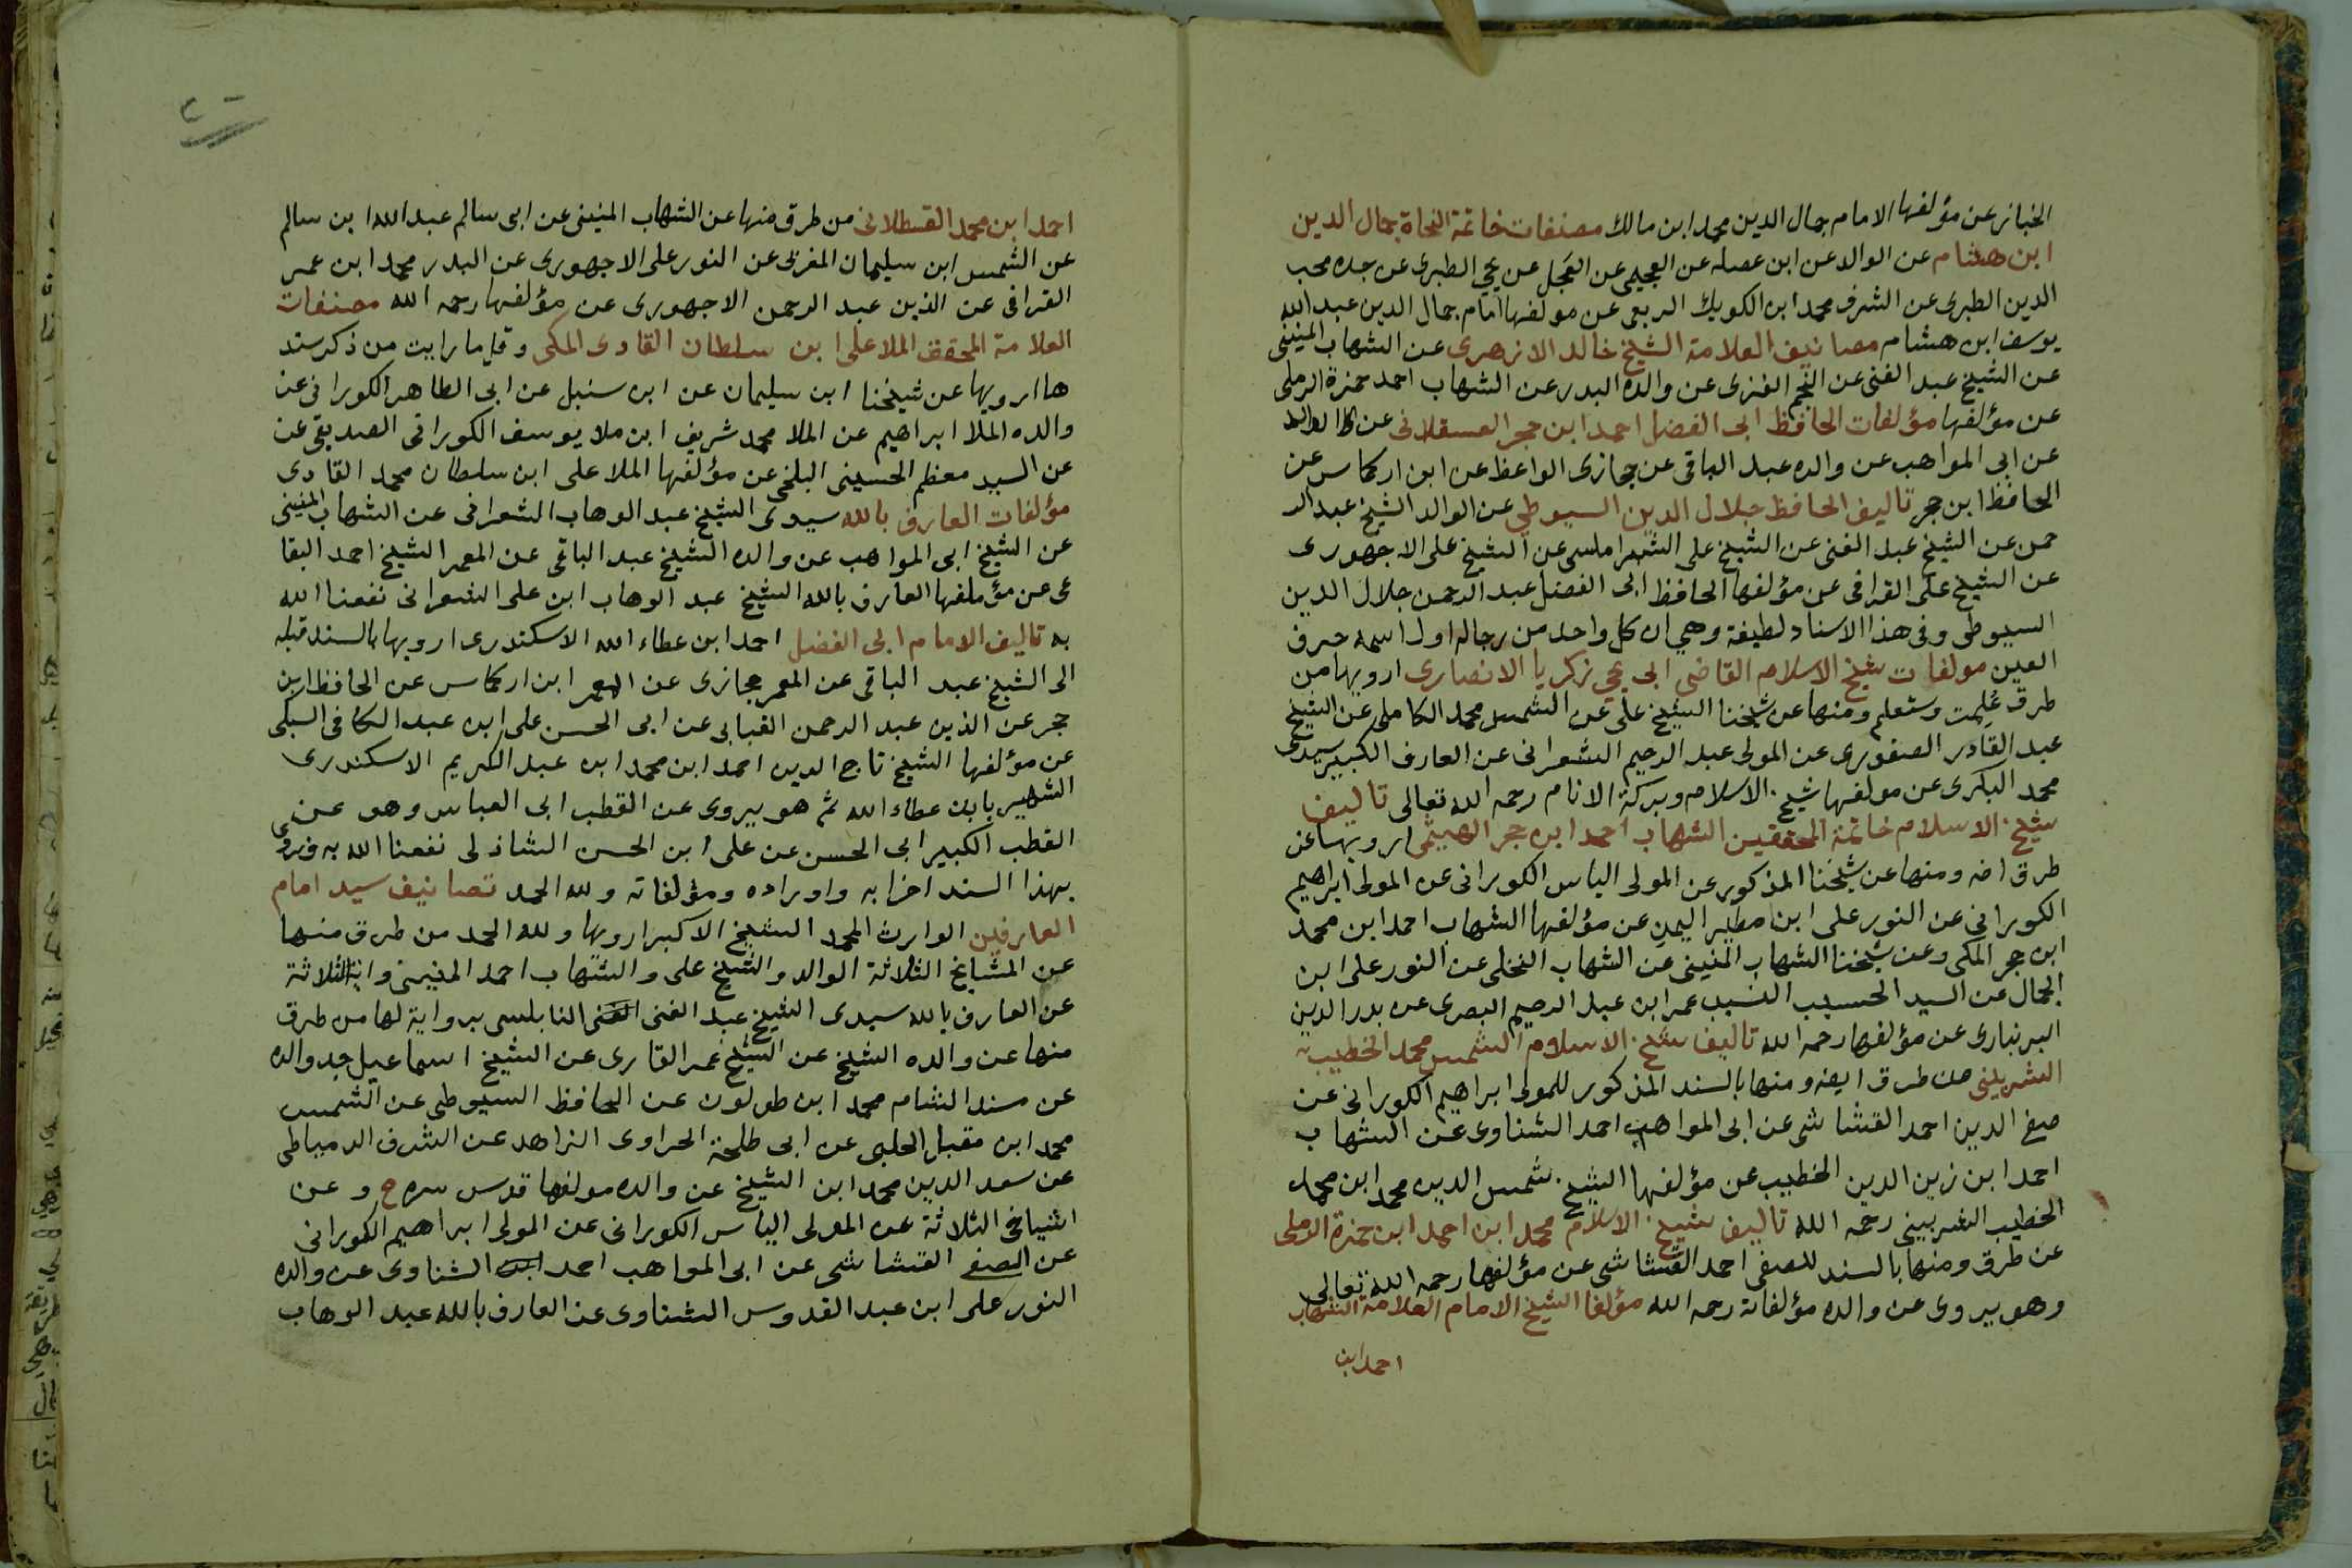 الخباز عن مؤلفها الامام جمال الدين محمد ابن مالك مصنفات خاتمة النحاة جمال الدين
ابن هشام عن الوالد عن ابن عصله عن العجيمي عن العجل عن يحي الطبري عن جده محب
الدين الطبري عن الشرف محمد ابن الكويك الربعي عن مولفها امام جمال الدين عبد الله
يوسف ابن هشام مصانيف العلامة الشيخ خالد الازهرى عن الشهاب المنينى
عن الشيخ عبد الغنى عن النجم الغزى عن والده البدر عن الشهاب احمد حمزة الرملى
عن مؤلفها مؤلفات الحافظ ابى الفضل احمد ابن حجر العسقلانى عن الوالد
عن ابى المواهب عن والده عبد الباقى عن حجازى الواعظ عن ابن اركماس عن
الحافظ ابن حجر تاليف الحافظ جلال الدين السيوطي عن الوالد الشيخ عبد الر
حمن عن الشيخ عبد الغنى عن الشيخ على الشبراملسى عن الشيخ على الاجهورى
عن الشيخ على القرافى عن مؤلفها الحافظ ابى الفضل عبد الرحمن جلال الدين
السيوطى وفى هذا الاسناد لطيفة وهي ان كل واحد من رجاله اول اسمه حرف
العين مولفات شيخ الاسلام القاضى ابى يحي زكريا الانصارى ارويها من
طرق عُلِمت وستعلم ومنها عن شيخنا الشيخ على عن الشمس محمد الكاملى عن الشيخ
عبد القادر الصفورى عن المولى عبد الرحيم الشعرانى عن العارف الكبير سيدى
محمد البكرى عن مولفها شيخ الاسلام وبركة الانام رحمه الله تعالى تاليف
شيخ الاسلام خاتمة المحققين الشهاب احمد ابن حجر الهيتمى ارويها عن
طرق اضه ومنها عن شيخنا المذكور عن المولى الياس الكورانى عن المولى ابراهيم
الكورانى عن النور على ابن مطير اليمن عن مؤلفها الشهاب احمد ابن محمد
ابن حجر المكى وعن شيخنا الشهاب المنينى عن الشهاب النخلى عن النور على ابن
الجمال عن السيد الحسيب النسيب عمر ابن عبد الرحيم البصرى عن بدر الدين
البرنبارى عن مؤلفها رحمه الله تاليف شيخ الاسلام الشمس محمد الخطيب
الشربينى من طرق ايضه ومنها بالسند المذكور للمولى ابراهيم الكورانى عن
صفى الدين احمد القشاشى عن ابى المواهب احمد الشناوى عن الشهاب
احمد ابن زين الدين الخطيب عن مؤلفها الشيخ شمس الدين محمد ابن محمد
الخطيب الشربينى رحمه الله تاليف شيخ الاسلام محمد ابن احمد ابن حمزة الرملى
عن طرق ومنها بالسند للصفى احمد القشاشى عن مؤلفها رحمه الله تعالى
وهو يروى عن والده مؤلفاته رحمه الله مؤلفا الشيخ الامام العلامة الشهاب
احمد ابن
احمد ابن محمد القسطلانى من طرق منها عن الشهاب المنينى عن ابى سالم عبد الله ابن سالم
عن الشمس ابن سليمان المغربى عن النور على الاجهورى عن البدر محمد ابن عمر
القرافى عن الزين عبد الرحمن الاجهورى عن مؤلفها رحمه الله مصنفات
العلامة المحقق الملا على ابن سلطان القادى المكى وقل ما رايت من ذكر سند
ها ارويها عن شيخنا ابن سليمان عن ابن سنبل عن ابى الطاهر الكورانى عن
والده الملا ابراهيم عن الملا محمد شريف ابن ملا يوسف الكورانى الصديقى عن
عن السيد معظم الحسينى البلخى عن مؤلفها الملا على ابن سلطان محمد القادى
مؤلفات العارف بالله سيدى الشيخ عبد الوهاب الشعرانى عن الشهاب المنينى
عن الشيخ ابى المواهب عن والده الشيخ عبد الباقى عن المعمر الشيخ احمد البقا
عى عن مؤملفها العارف بالله الشيخ عبد الوهاب ابن على الشعرانى نفعنا الله
به تاليف الامام ابى الفضل احمد ابن عطاء الله الاسكندرى ارويها بالسند قبله
الى الشيخ عبد الباقى عن المعمر حجازى عن المعمر ابن اركماس عن الحافظ ابن
حجر عن الزين عبد الرحمن القبابى عن ابى الحسن على ابن عبد الكافى السبكى
عن مؤلفها الشيخ تاج الدين احمد ابن محمد ابن عبد الكريم الاسكندرى
الشهير بابن عطاء الله ثم هو يروى عن القطب ابى العباس وهو عن
القطب الكبير ابى الحسن عن على ابن الحسن الشاذلى نفعنا الله به ونروى
بهذا السند احزابه واوراده ومؤلفاته ولله الحمد تصانيف سيد امام
العارفين الوارث المحمد الشيخ الاكبر ارويها ولله الحمد من طرق منها
عن المشايخ الثلاثة الوالد والشيخ على والشهاب احمد المنينى الثلاثة
عن العارف بالله سيدى الشيخ عبد الغنى النابلسى برواية لها من طرق
منها عن والده الشيخ عن الشيخ عمر القارى عن الشيخ اسماعيل جد والده
عن مسند الشام محمد ابن طولون عن الحافظ السيوطى عن الشمس
محمد ابن مقبل الحلبى عن ابى طلحة الحراوى الزاهد عن الشرف الدمياطى
عن سعد الدين محمد ابن الشيخ عن والده مولفها قدس سره ح وعن
اشياخى الثلاثة عن المولى الياس الكورانى عن المولى ابراهيم الكورانى
عن الصفى القشاشى عن ابى المواهب احمد ابن الشناوى عن والده
النور على ابن عبد القدوس الشناوى عن العارف بالله عبد الوهاب